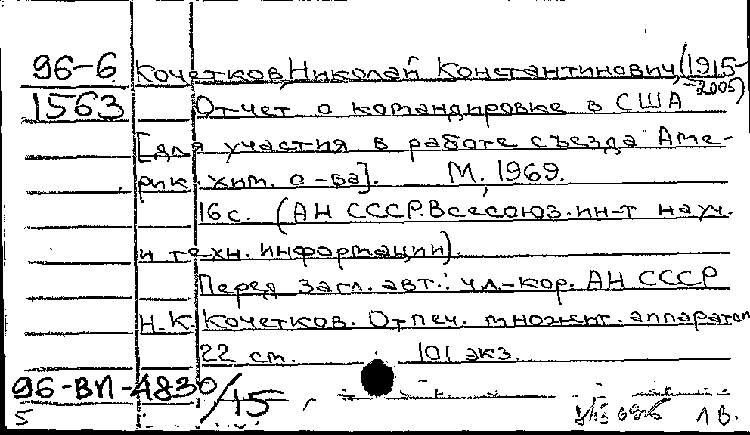 96-6 Кочетков, Николай Константинович (1915-
2005)
1563 Отчет о командировке в США
[для участия в работе съезда Аме-
рик. хим. о-ва]. М., 1969.
16 с. (АН СССР. Всесоюз. ин-т науч.
и техн. информации).
Перед загл. авт.: чл-кор. АН СССР
Н.К. Кочетков. Отпеч. множит. аппаратом
22 см. 101 экз.
96-ВП-4830/15
5 1 В.